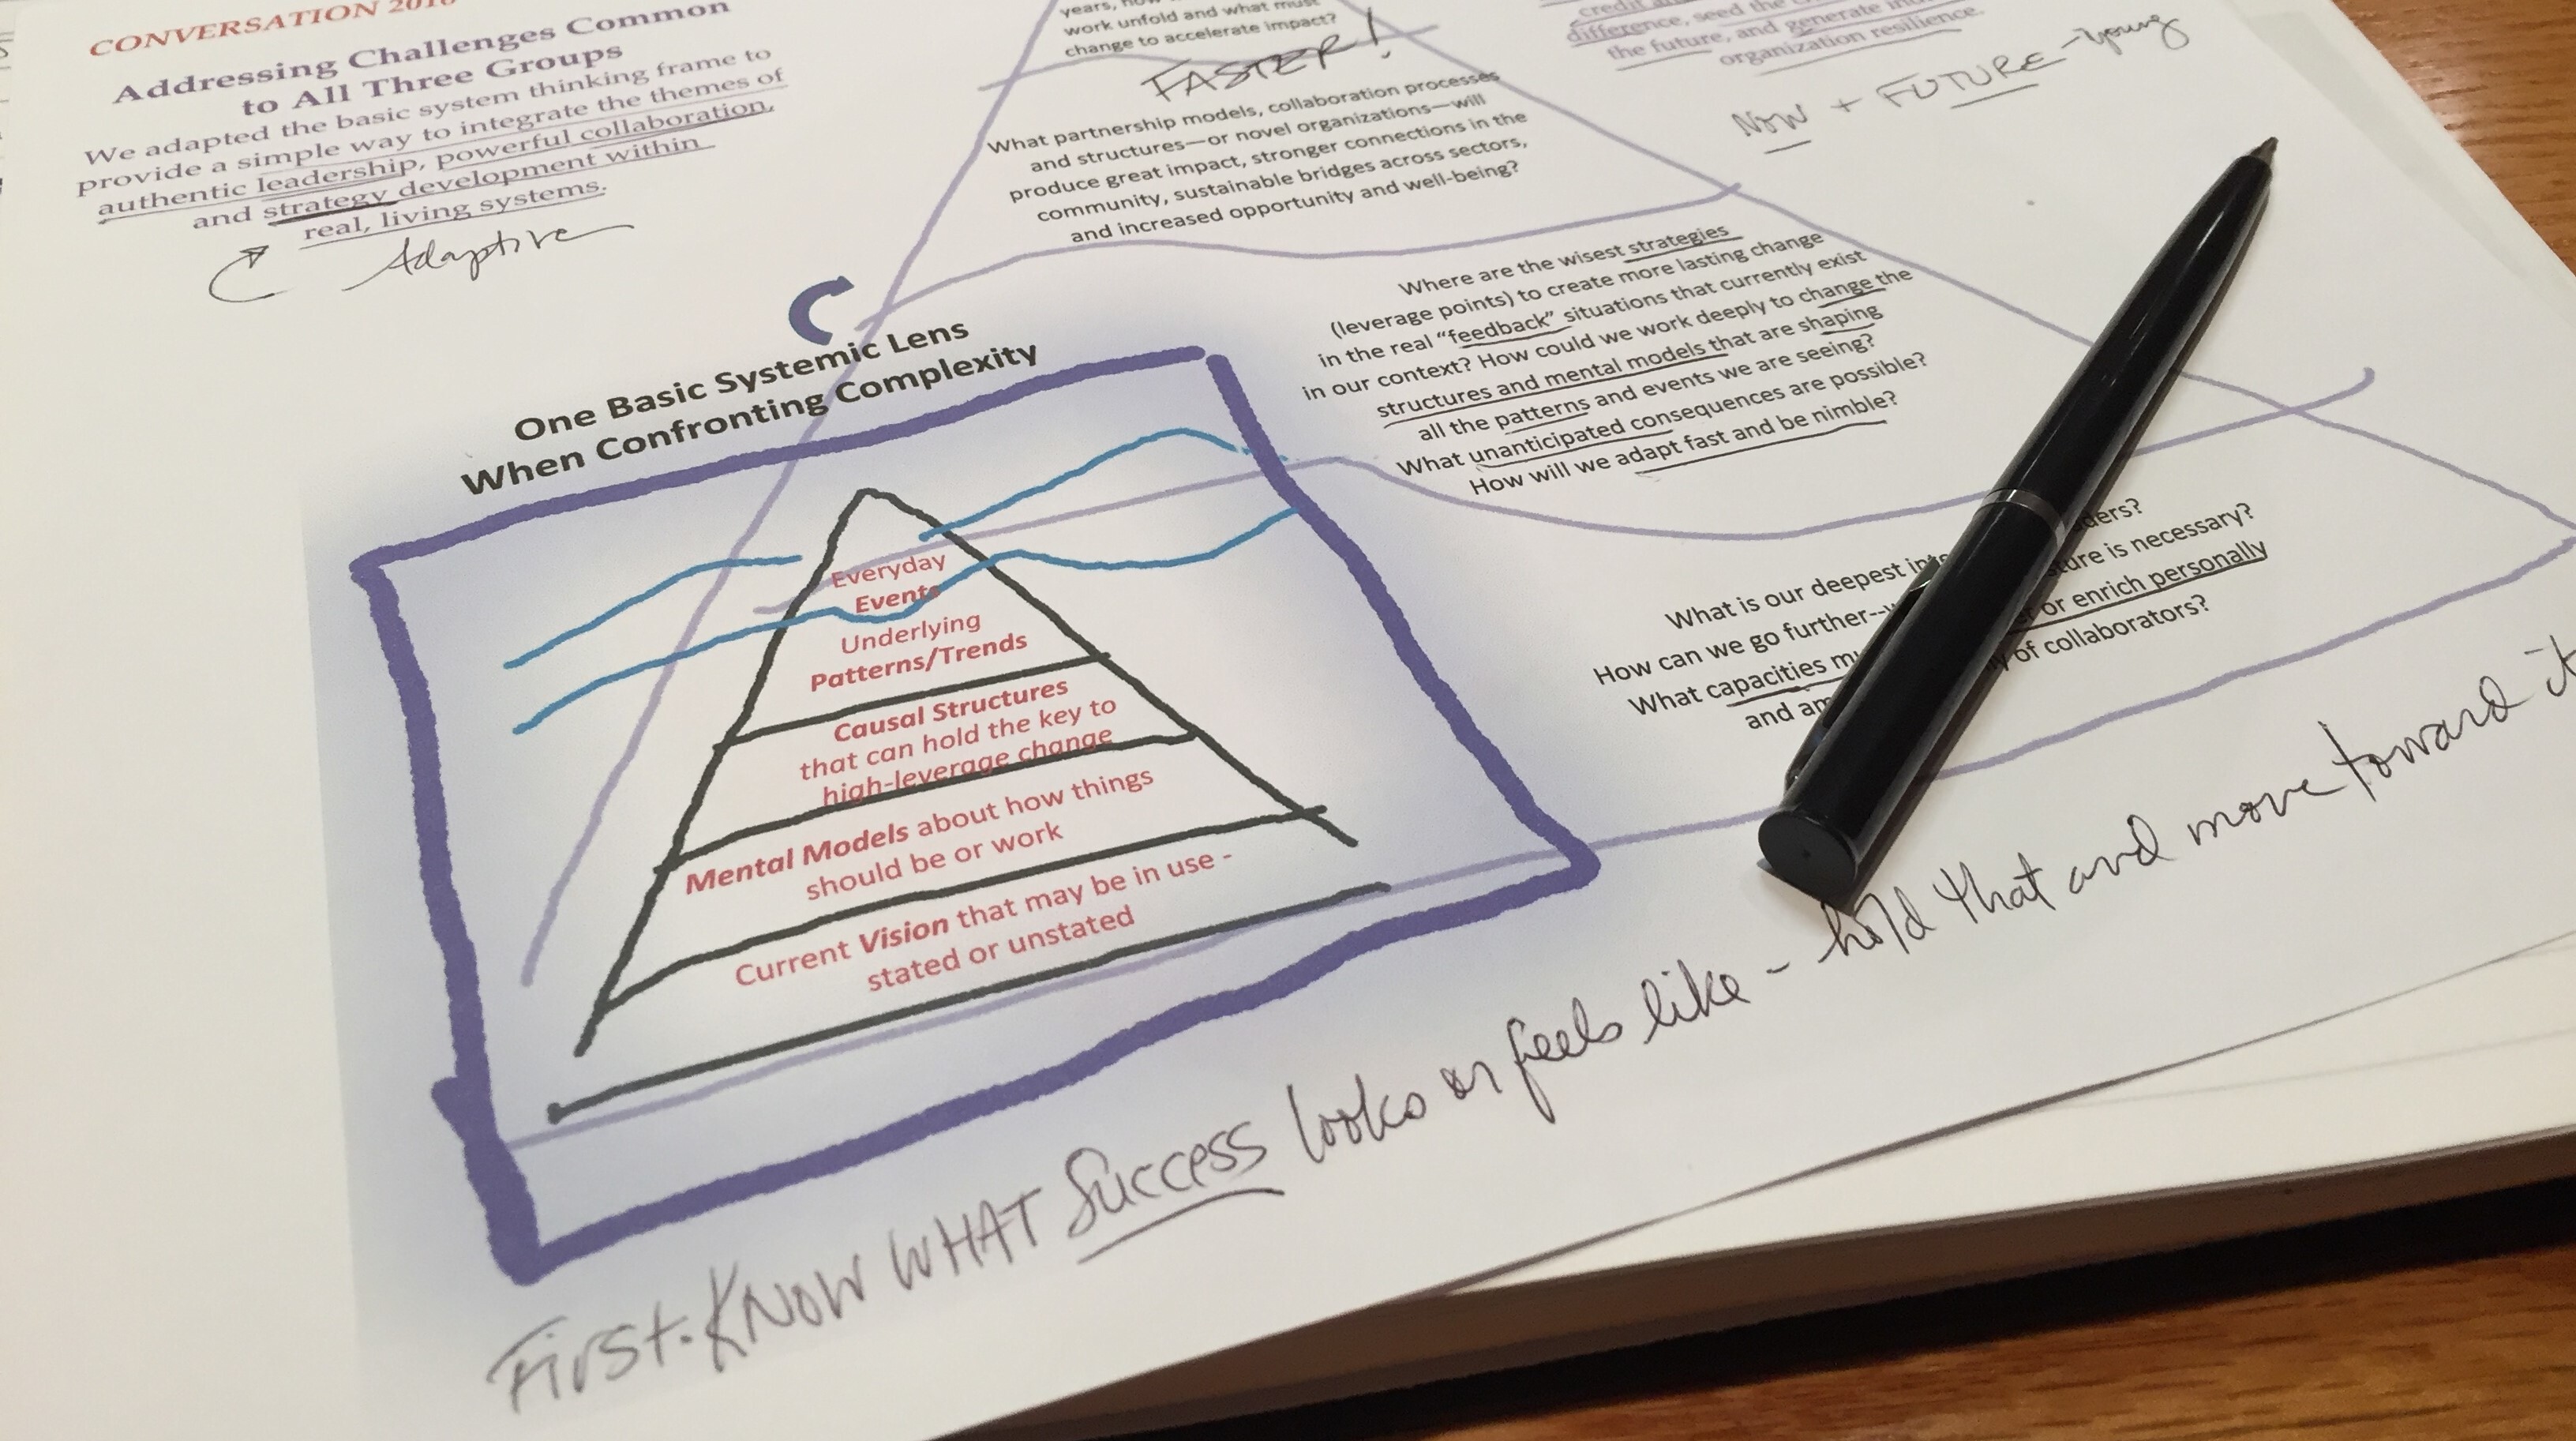 CONVERSATION 2016
Addressing Challenges Common
to All Three Groups
We adapted the basic system thinking frame to
provide a simple way to integrate the themes of
authentic leadership, powerful collaboration,
and strategy development within
real, living systems.
Adaptive
work unfold and what must
change to accelerate impact?
FASTER!
What partnership models, collaboration processes
and structures—or novel organizations—will
produce great impact, stronger connections in the
community, sustainable bridges across sectors,
and increased opportunity and well-being?
difference, seed the
the future, and generate
organization resilience.
NOW + FUTURE - young
Where are the wisest strategies
(leverage points) to create more lasting change
in the real "feedback" situations that currently exist
in our context? How could we work deeply to change the
structures and mental models that are shaping
all the patterns and events we are seeing?
What unanticipated consequences are possible?
How will we adapt fast and be nimble?
What is our deepest
How can we go further--
is necessary?
What capacities
or enrich personally
and
of collaborators?
One Basic Systemic Lens
When Confronting Complexity
Everyday
Events
Underlying
Patterns/Trends
Causal Structures
that can hold the key to
high-leverage change
Mental Models about how things
should be or work
Current Vision that may be in use -
stated or unstated
First. KNOW WHAT Success looks or feels like - hold that and move toward it